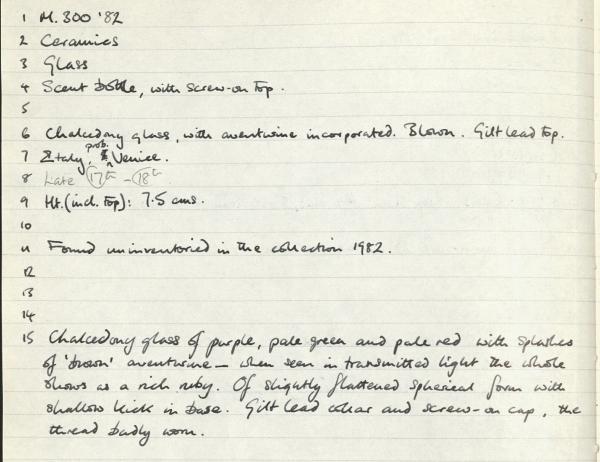 1 M. 300 '82
2 Ceramics
3 Glass
4 Scent bottle, with screw-on top.
5
6 Chalcedony glass, with aventurine incorporated. Blown. Gilt lead top.
7 Italy, prob. Venice.
8 Late 17th - 18th
9 Ht. (incl. top): 7.5 cms.
10
11 Found uninventoried in the collection 1982.
12
13
14
15 Chalcedony glass of purple, pale green and pale red with splashes
of 'brown' aventurine — when seen in transmitted light the whole
shows as a rich ruby. Of slightly flattened spherical form with
shallow kick in base. Gilt lead collar and screw-on cap, the
thread badly worn.